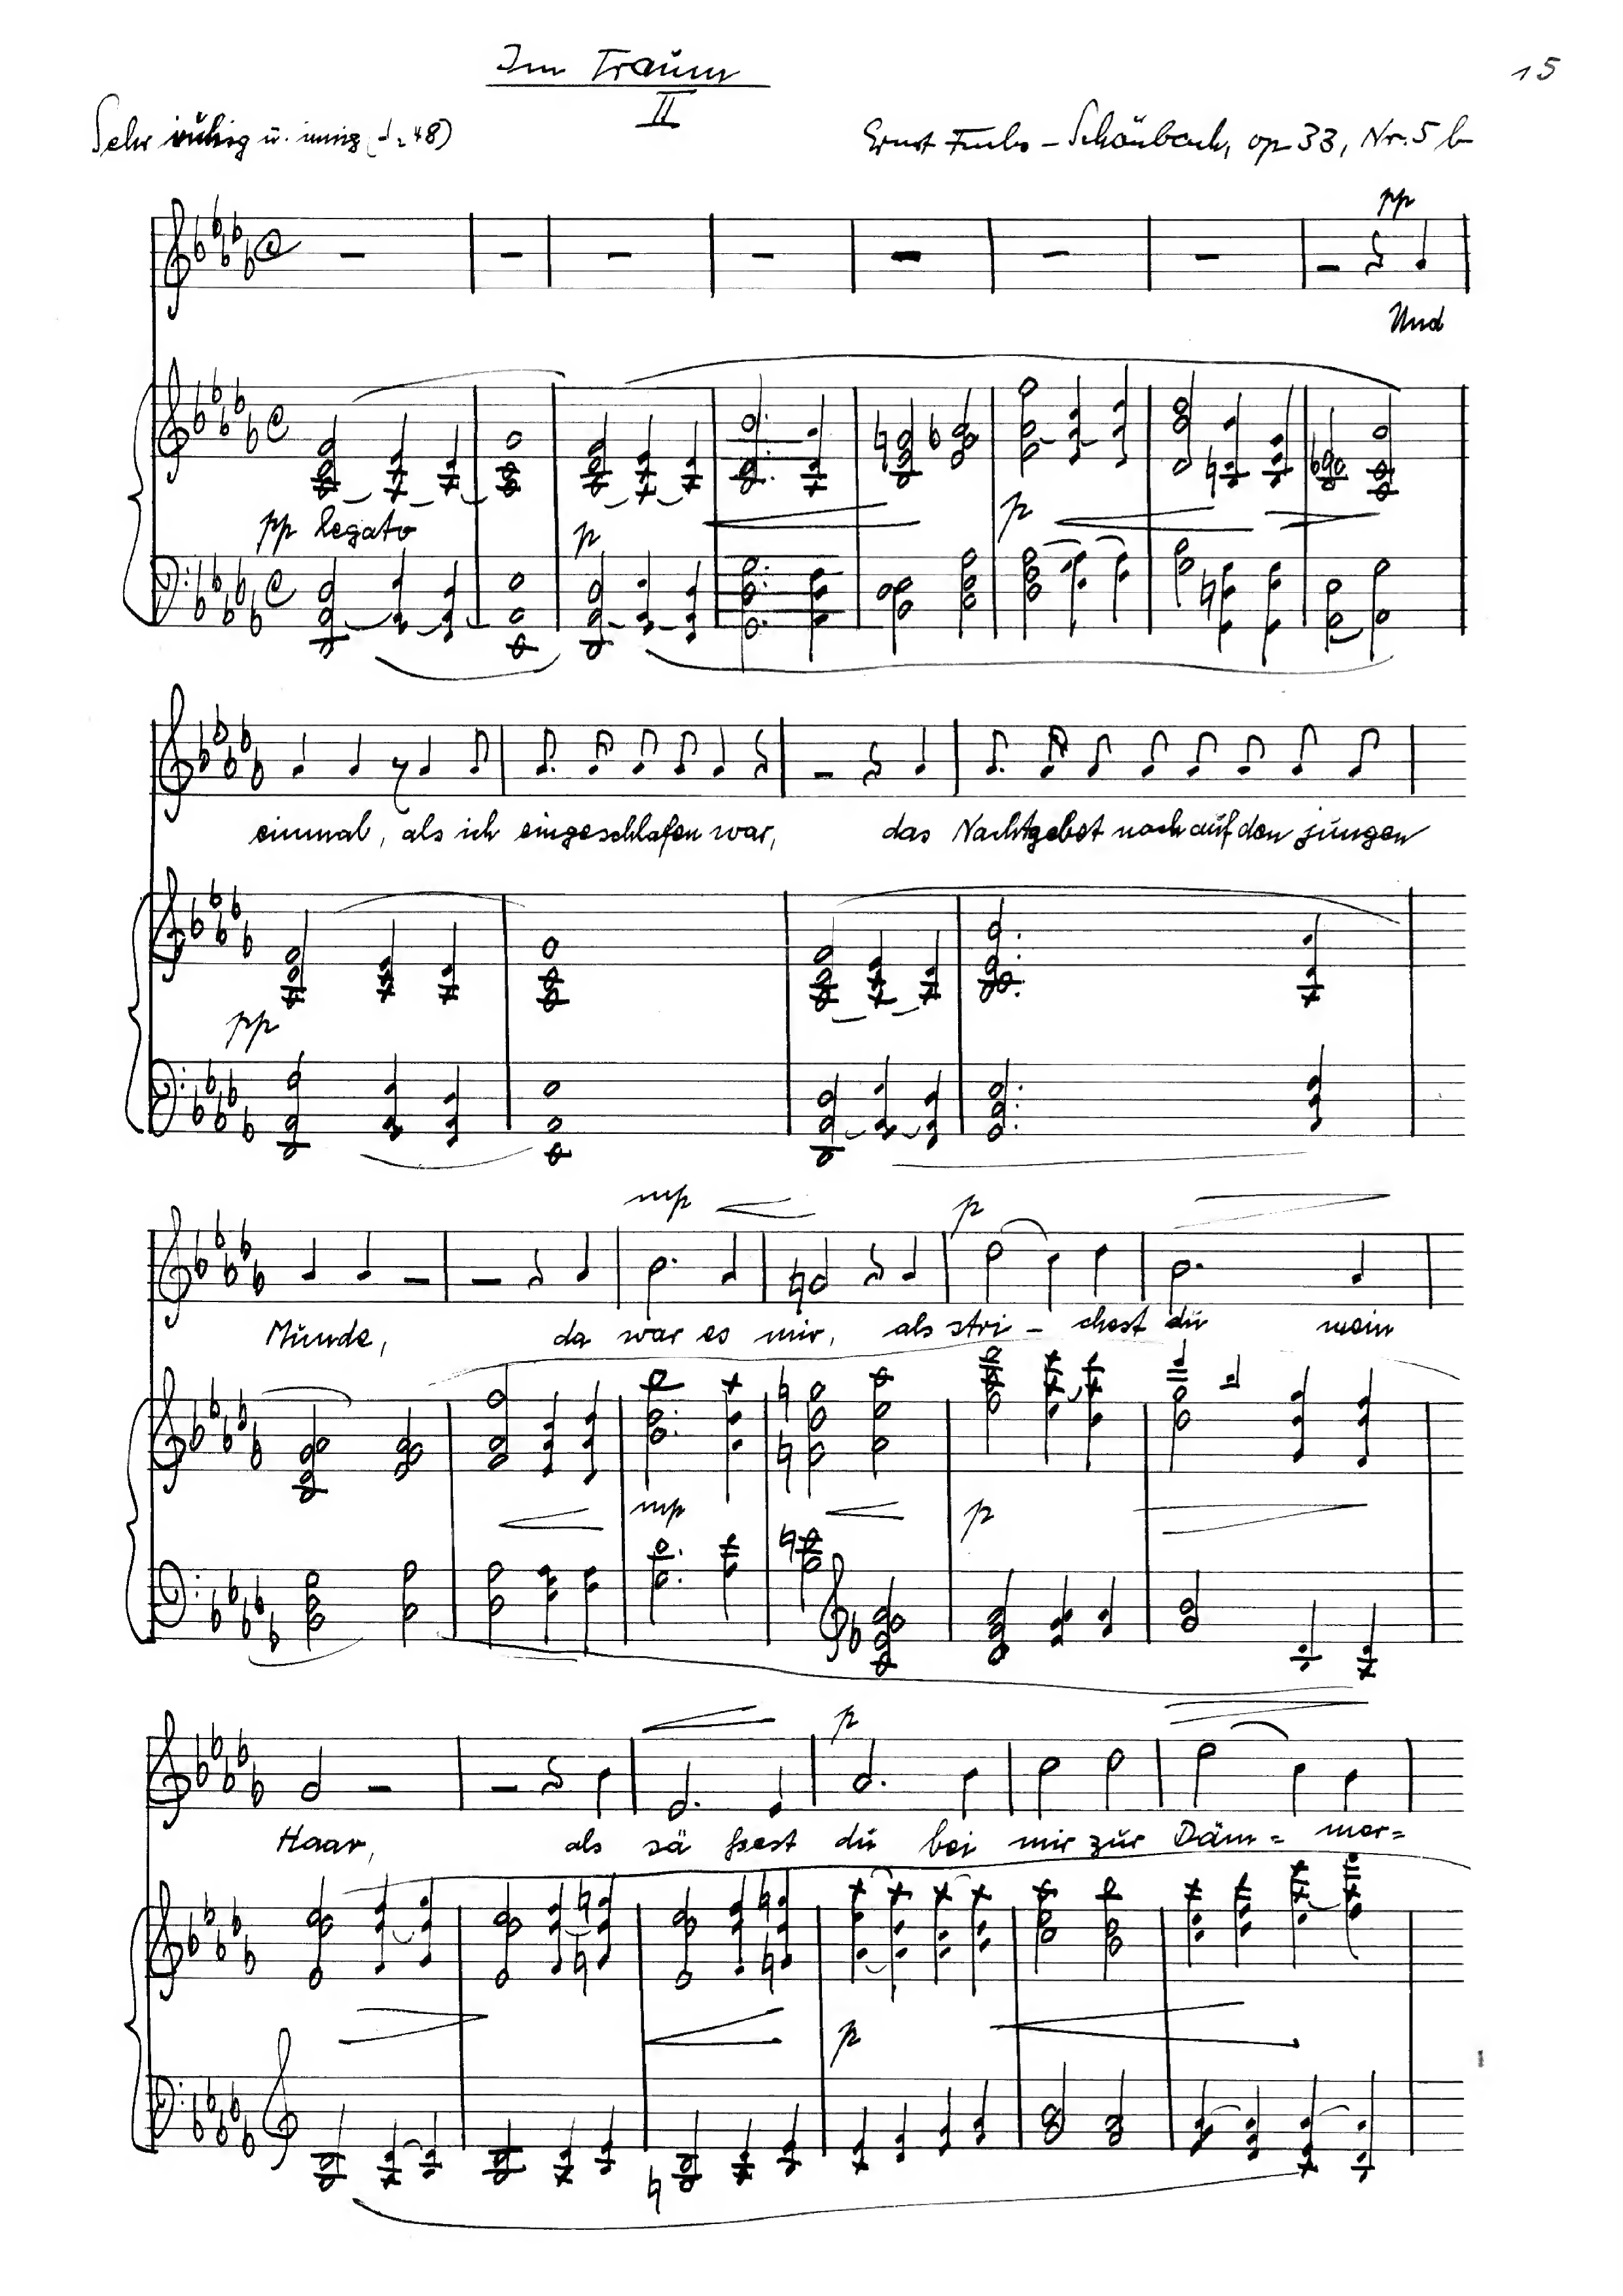 Im Traum
15
II
Sehr ruhig u. innig (♩=48)
Ernst Fuchs-Schönbach, op 33, Nr. 5 b
pp
Und
pp legato
p
p
einmal, als ich eingeschlafen war, das Nachtgebet noch auf den jungen
pp
mp p
Munde, da war es mir, als stri - chest du mein
mp p
p
Haar, als sä ssest du bei mir zur Däm= mer=
p